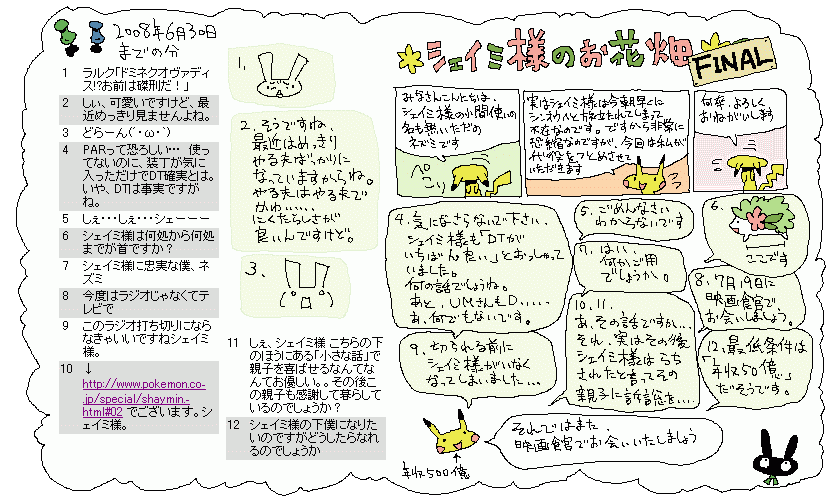 2008年6月30日
までの分
1 ラルク「ドミネクオヴァディ
ス!?お前は磔刑だ!」
2 しぃ、可愛いですけど、最
近めっきり見ませんよね。
3 どらーん(´・ω・`)
4 PARって恐ろしい… 使っ
てないのに、装丁が気に
入っただけでDT確実とは。
いや、DTは事実ですが
ね。
5 しぇ・・・しぇ・・・シェーーー
6 シェイミ様は何処から何処
までが首ですか?
7 シェイミ様に忠実な僕、ネ
ズミ
8 今度はラジオじゃなくてテ
レビで
9 このラジオ打ち切りになら
なきゃいいですねシェイミ
様。
10 ↓
http://www.pokemon.co-
.jp/special/shaymin.-
html#02 でございます。シ
ェイミ様。
1.
2. そうですね、
最近はめっきり
やる夫ばっかりに
なっていますからね。
やる夫はやる夫で
かわい、、、、、
にくたらしさが
良いんですけど。
3.
(°□°)
11 しぇ、シェイミ様 こちらの下
のほうにある「小さな話」で
親子を喜ばせるなんてな
んてお優しい。。その後こ
の親子も感謝して暮らして
いるのでしょうか?
12 シェイミ様の下僕になりた
いのですがどうしたらなれ
るのでしょうか
シェイミ様のお花畑
FINAL
みなさんこんにちは、
シェイミ様の小間使いの
名も無いただの
ネズミです
ぺこり
実はシェイミ様は今朝早くに
シンオウへと旅立たれてしまって
不在なのです。ですから非常に
恐縮なのですが、今回は私が
代役をつとめさせて
いただきます
何卒、よろしく
おねがいします
4. 気になさらないで下さい、
シェイミ様も「DTが
いちばん良い」とおっしゃって
いました。
何の話でしょうね。
あと、UMさんもD、、、、、
あ、何でもないです。
5. ごめんなさい
わからないです
6.
ここです
7. はい、
何かご用
でしょうか。
8. 7月19日に
映画食官で
お会いしましょう。
9. 切られる前に
シェイミ様がいなく
なってしまいました…
10、11.
あ、その話ですか…
それ、実はその後
シェイミ様はらち
されたと言ってその
親子に訴訟を…
12、最低条件は
「年収50億」
だそうです。
それではまた、
映画食官でお会いいたしましょう
年収500億